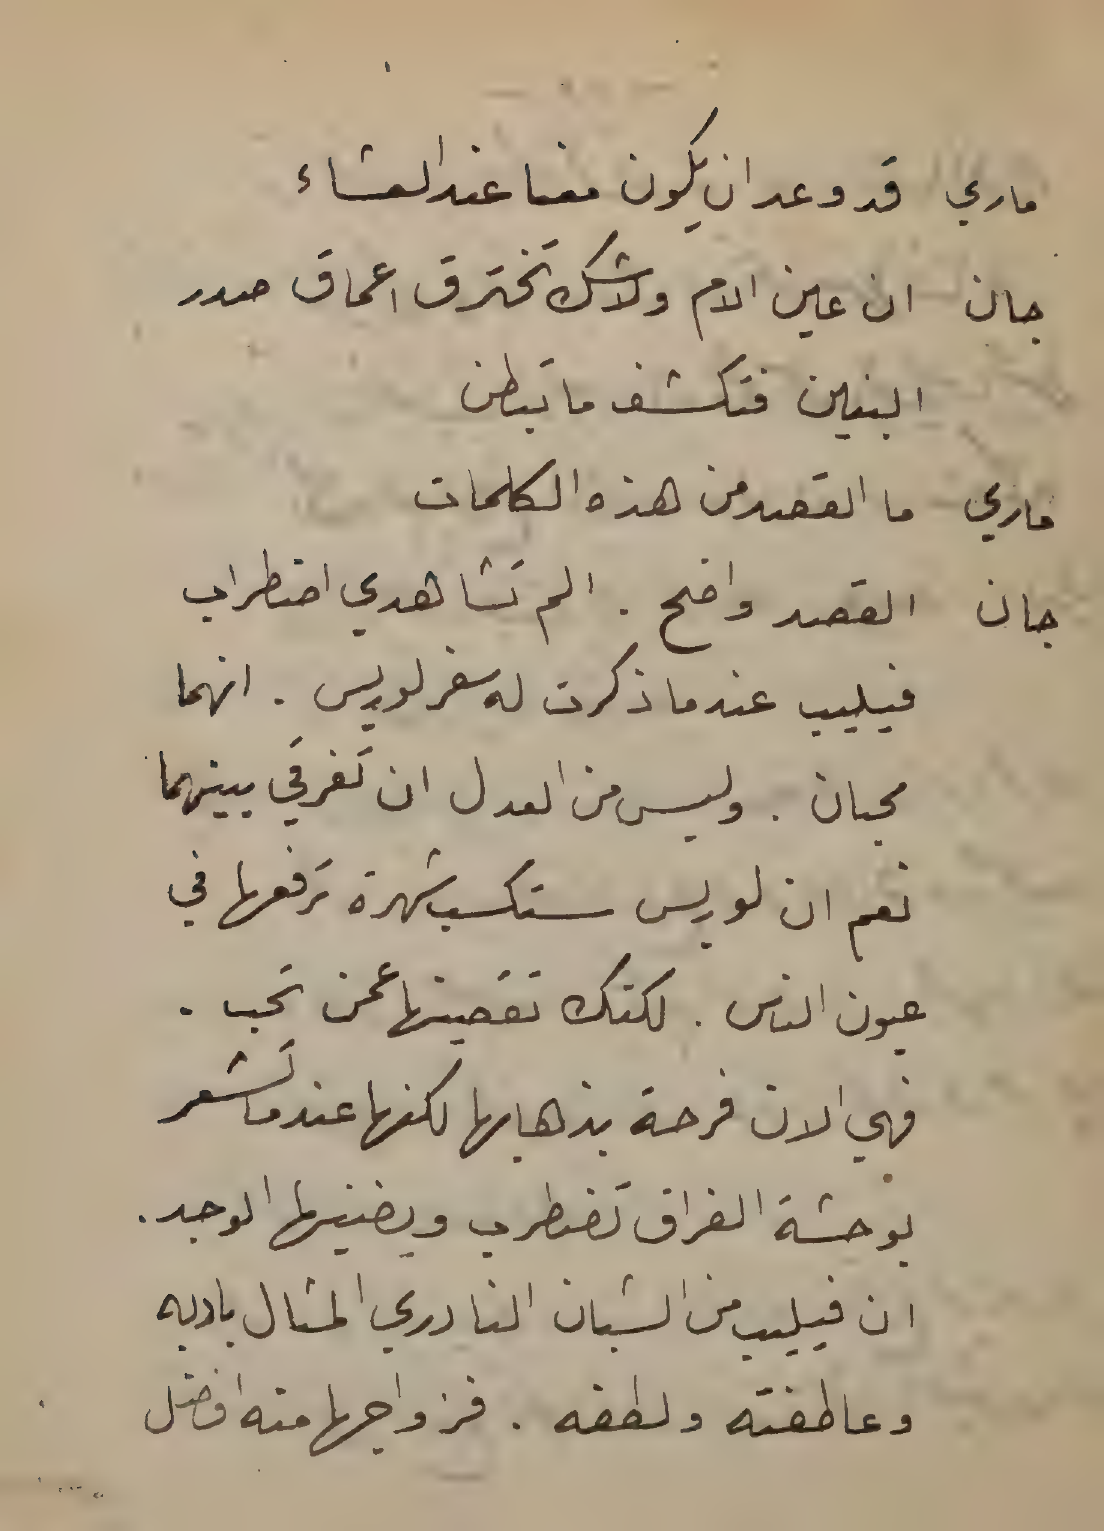 ماري قد وعد ان يكون معنا عند العشاء
جان ان عين الام ولا شك تخترق اعماق صدر
البنين فتكشف ما تبطن
ماري ما القصد من هذه الكلمات
جان القصد واضح . الم تشاهدي اضطراب
فيليب عندما ذكرت له سفر لويس . انهما
محبان . وليس من العدل ان تفرقي بينهما
نعم ان لويس ستكسب شهرة ترفعها في
عيون الناس . لكنك تقصينها عمن تحب .
فهي الان فرحة بذهابها لكنها عندما تشعر
بوحشة الفراق تضطرب ويضنيها الوجد .
ان فيليب من الشبان النادري المثال بادبه
وعاطفته ولطفه . فزواجها منه افضل